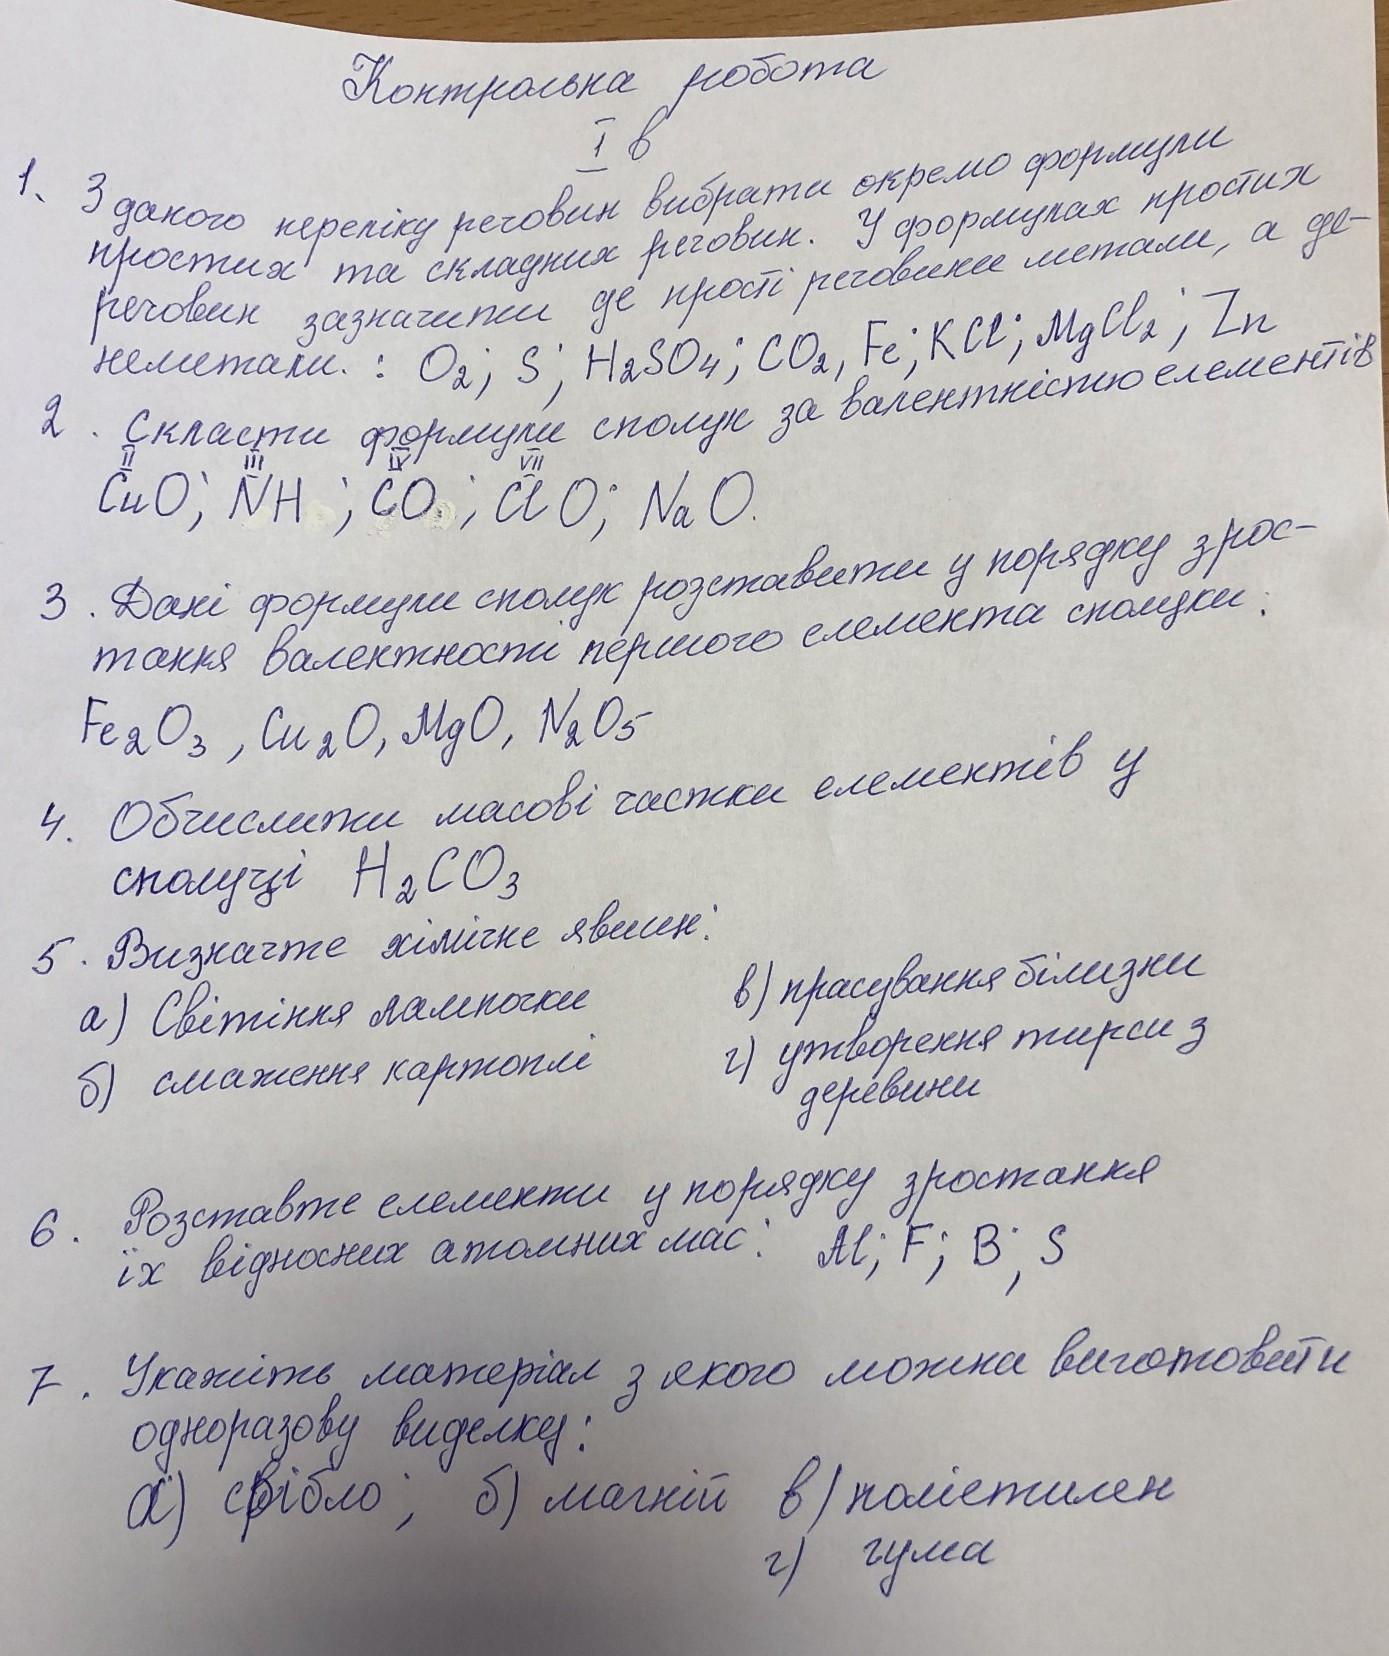 Контрольна робота
I в
1. З даного переліку речовин вибрати окремо формули
простих та складних речовин. У формулах простих
речовин зазначити де прості речовини метали, а де-
неметали. : O₂; S; H₂SO₄; CO₂, Fe; KCl; MgCl₂; Zn
2. Скласти формули сполук за валентністю елементів
II III IV VII
CuO; NH ; CO ; ClO; NaO.
3. Дані формули сполук розставити у порядку зрос-
тання валентності першого елемента сполуки:
Fe₂O₃, Cu₂O, MgO, N₂O₅
4. Обчислити масові частки елементів у
сполуці H₂CO₃
5. Визначте хімічне явище:
а) Світіння лампочки в) прасування білизни
б) смаження картоплі г) утворення тирси з
деревини
6. Розставте елементи у порядку зростання
їх відносних атомних мас: Al; F; B; S
7. Укажіть матеріал з якого можна виготовити
одноразову виделку:
а) срібло; б) магній в) поліетилен
г) гума